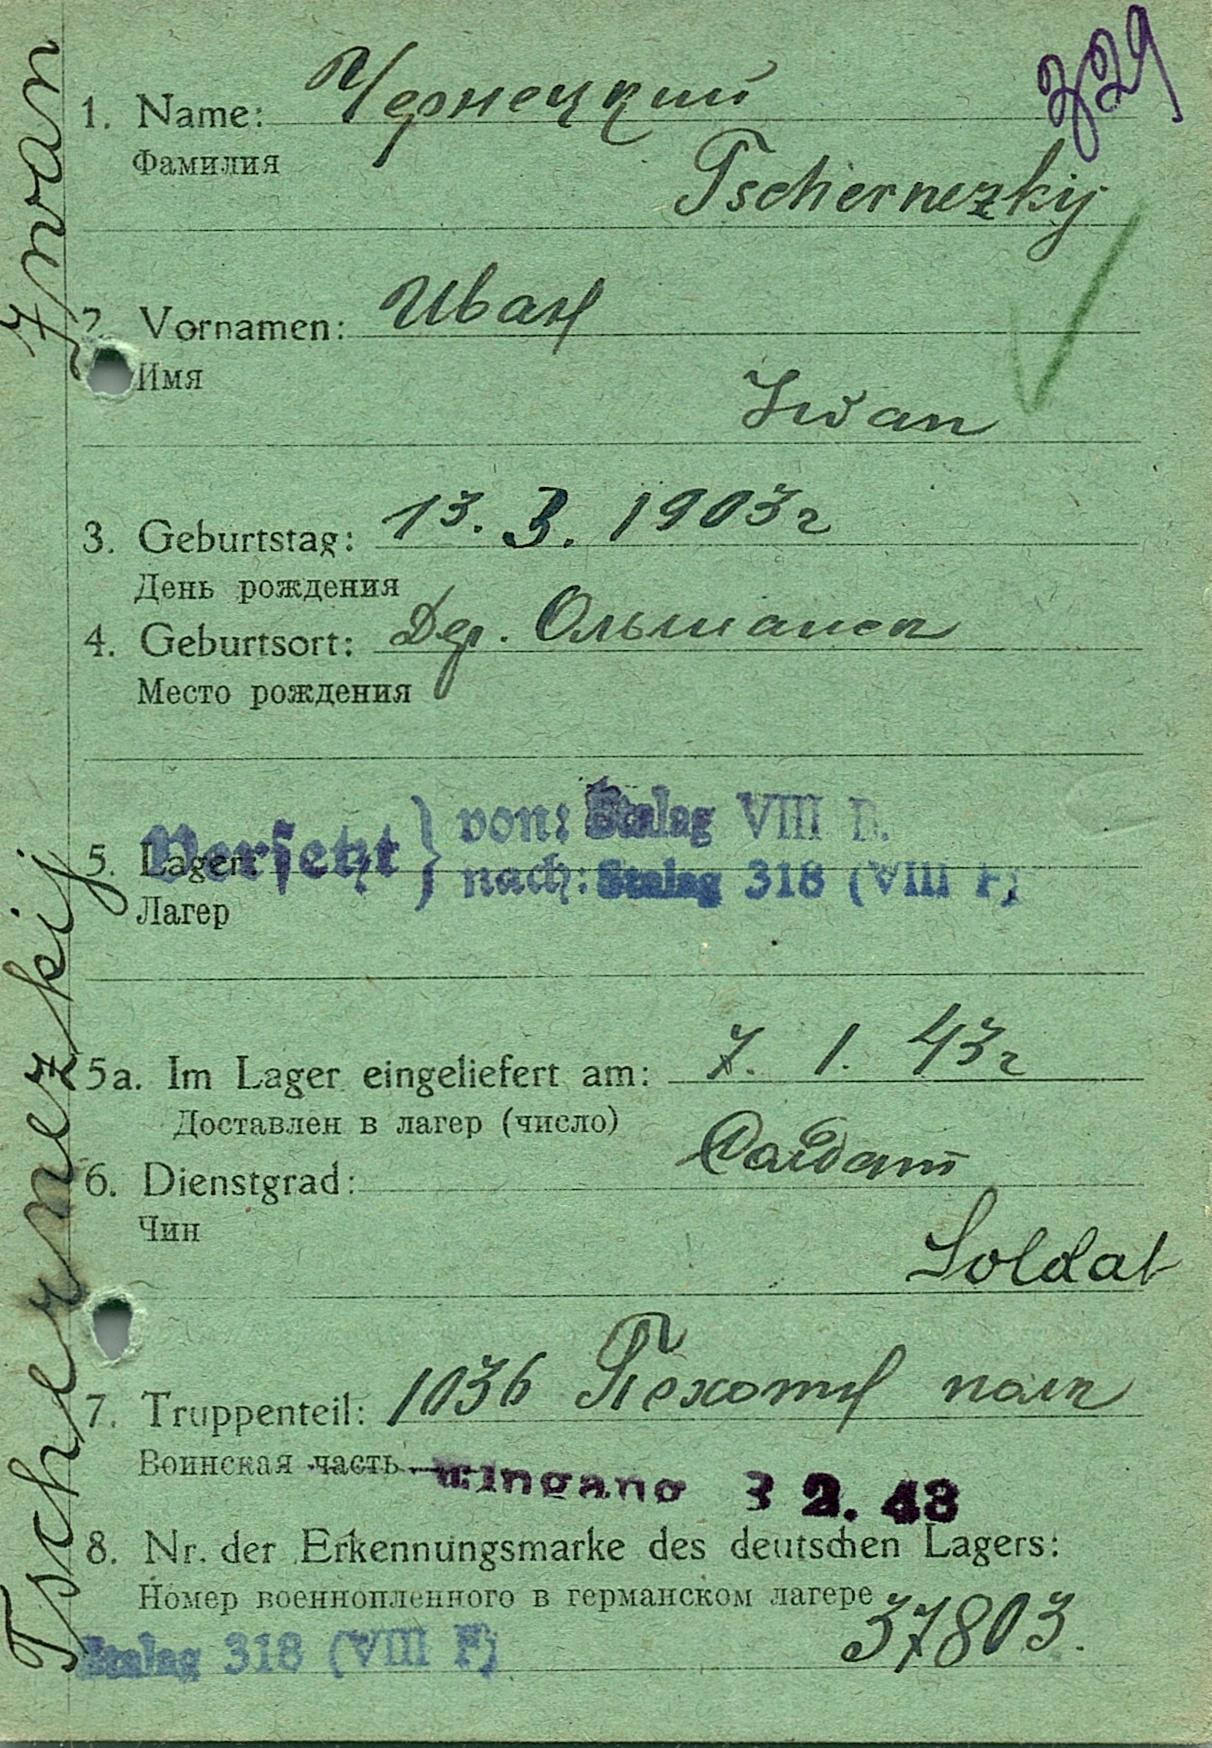 329
1. Name: Чернецкий
Фамилия
Tschernezkij
2. Vornamen: Иван
Имя
Iwan
3. Geburtstag: 13. 3. 1903 г
День рождения
4. Geburtsort: Дер. Ольшанск
Место рождения
Versetzt } von: Stalag VIII B.
5. Lager:
nach: Stalag 318 (VIII F)
Лагер
5a. Im Lager eingeliefert am: 7. 1. 43 г
Доставлен в лагер (число)
6. Dienstgrad: Солдат
Чин
Soldat
7. Truppenteil: 1036 Пехотн полк
Воинская часть
Eingang 3 2. 43
8. Nr. der Erkennungsmarke des deutschen Lagers:
Номер военнопленного в германском лагере
37803.
Stalag 318 (VIII F)
Tschernezkij Iwan